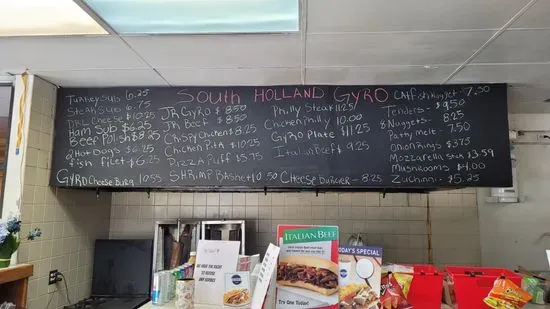 South HOLLAND GYRO
Turkey Sub 6.25
Steak Sub 6.75
DBL Cheese 
Ham Sub $6.25
Beef Polish $8.25
2 Hot Dogs $6.25
Fish filet $6.25
GYRO Cheese Burg 10.55
JR Gyro $8.50
JR Beef $8.50
Crispy Chicken $8.25
Chicken Pita $10.25
Pizza Puff $5.75
SHRIMP BASKET 10.50
Philly Steak 11.25
Chicken Philly 10.00
Gyro Plate $11.25
Italian Beef $9.25
CHEESE BURGER - 8.25
Catfish Nugget - 7.50
Tenders - $9.50
8 Nuggets - 8.25
Patty melt - 7.50
Onion Rings $3.75
Mozzarella Stick 13.59
Mushrooms $4.00
Zuchinni - $5.25
WE HAVE THE RIGHT
TO REFUSE
ANY
ITALIAN BEEF
Try One Today!
TODAY'S SPECIAL